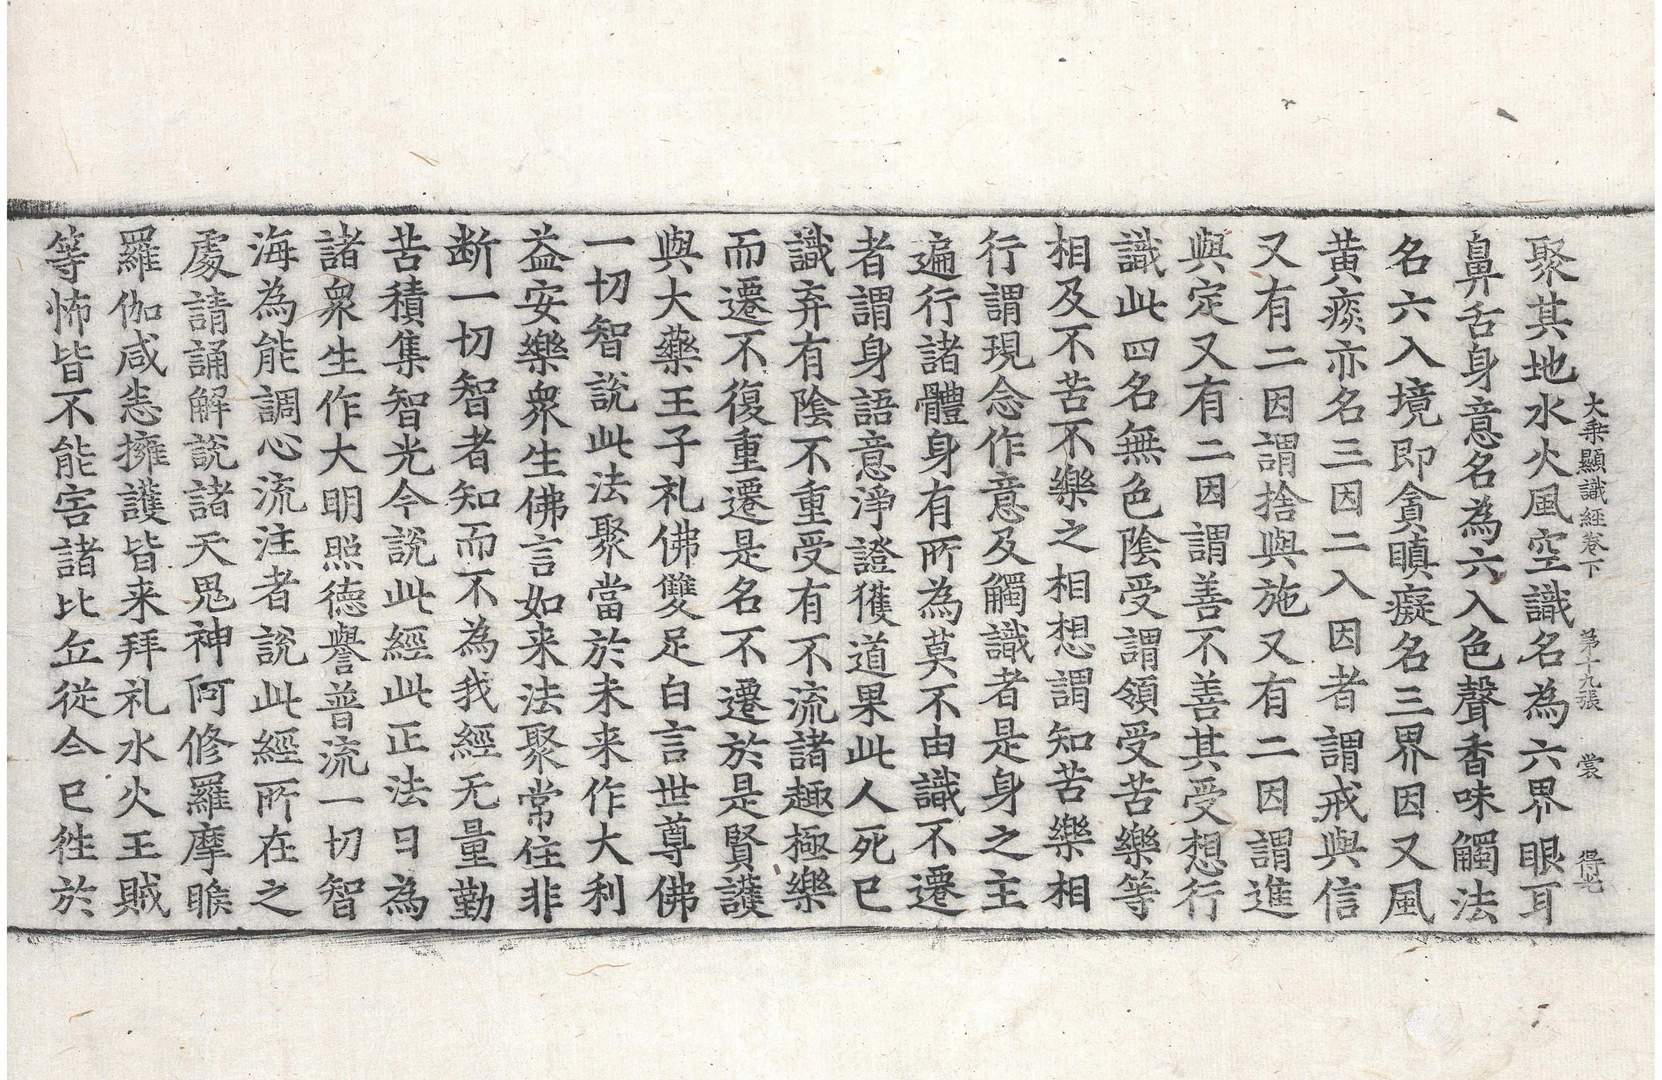 大乗顯識經卷下　第十九張　裳　得七
聚其地水火風空識名為六界眼耳
鼻舌身意名為六入色聲香味觸法
名六入境即貪瞋癡名三界因又風
黄痰亦名三因二入因者謂戒與信
又有二因謂捨與施又有二因謂進
與定又有二因謂善不善其受想行
識此四名無色陰受謂領受苦樂等
相及不苦不樂之相想謂知苦樂相
行謂現念作意及觸識者是身之主
遍行諸體身有所為莫不由識不遷
者謂身語意淨證獲道果此人死已
識弃有陰不重受有不流諸趣極樂
而遷不復重遷是名不遷於是賢護
與大藥王子礼佛雙足白言世尊佛
一切智說此法聚當於未来作大利
益安樂衆生佛言如来法聚常住非
断一切智者知而不為我經无量勤
苦積集智光今說此經此正法日為
諸衆生作大明照德譽普流一切智
海為能調心流注者說此經所在之
處請誦解說諸天鬼神阿修羅摩睺
羅伽咸恙擁護皆来拜礼水火王賊
等怖皆不能害諸比丘從今已往於